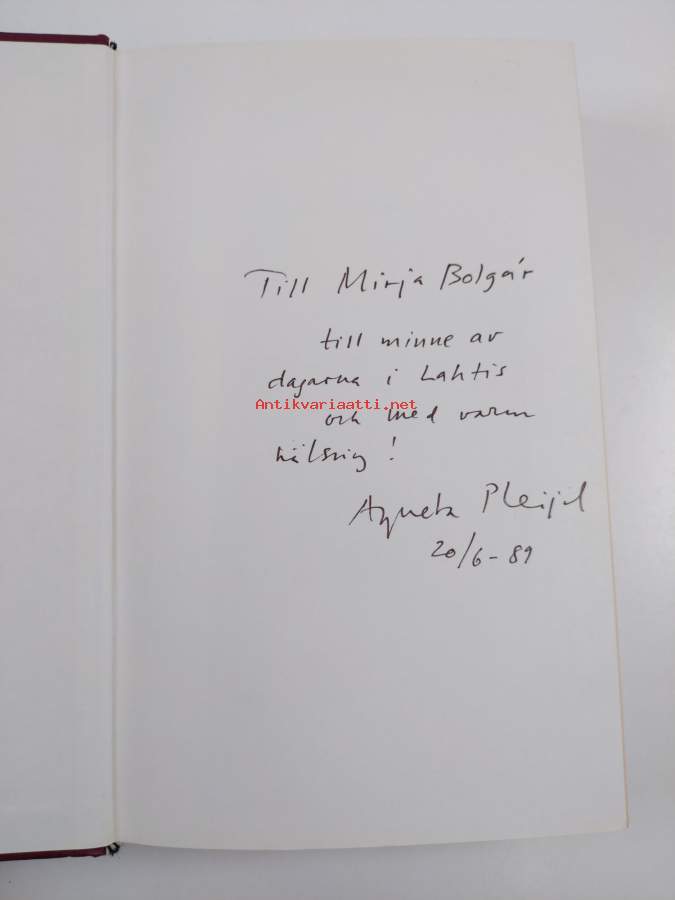 Till Mirja Bolgár
till minne av
dagarna i Lahtis
Antikvariaatti.net
och med varm
hälsning!
Agneta Pleijel
20/6-89